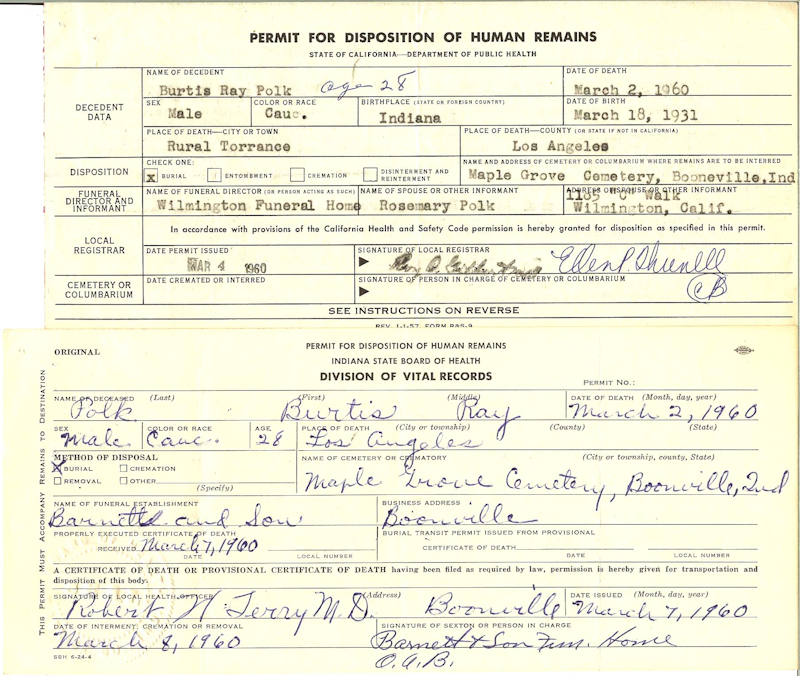 PERMIT FOR DISPOSITION OF HUMAN REMAINS
STATE OF CALIFORNIA—DEPARTMENT OF PUBLIC HEALTH
DECEDENT DATA
NAME OF DECEDENT
Burtis Ray Polk age 28
DATE OF DEATH
March 2, 1960
SEX
Male
COLOR OR RACE
Cauc.
BIRTHPLACE (STATE OR FOREIGN COUNTRY)
Indiana
DATE OF BIRTH
March 18, 1931
PLACE OF DEATH—CITY OR TOWN
Rural Torrance
PLACE OF DEATH—COUNTY (OR STATE IF NOT IN CALIFORNIA)
Los Angeles
DISPOSITION
CHECK ONE:
X BURIAL ENTOMBMENT CREMATION DISINTERMENT AND REINTERMENT
NAME AND ADDRESS OF CEMETERY OR COLUMBARIUM WHERE REMAINS ARE TO BE INTERRED
Maple Grove Cemetery, Booneville, Ind
FUNERAL DIRECTOR AND INFORMANT
NAME OF FUNERAL DIRECTOR (OR PERSON ACTING AS SUCH)
Wilmington Funeral Home
NAME OF SPOUSE OR OTHER INFORMANT
Rosemary Polk
ADDRESS OF SPOUSE OR OTHER INFORMANT
1185 "C" Walk
Wilmington, Calif.
In accordance with provisions of the California Health and Safety Code permission is hereby granted for disposition as specified in this permit.
LOCAL REGISTRAR
DATE PERMIT ISSUED
MAR 4 1960
SIGNATURE OF LOCAL REGISTRAR
CEMETERY OR COLUMBARIUM
DATE CREMATED OR INTERRED
SIGNATURE OF PERSON IN CHARGE OF CEMETERY OR COLUMBARIUM
CB
SEE INSTRUCTIONS ON REVERSE
REV. 1-1-57 FORM R&S-9
ORIGINAL
PERMIT FOR DISPOSITION OF HUMAN REMAINS
INDIANA STATE BOARD OF HEALTH
DIVISION OF VITAL RECORDS
PERMIT NO.:
THIS PERMIT MUST ACCOMPANY REMAINS TO DESTINATION
NAME OF DECEASED (Last) (First) (Middle)
Polk Burtis Ray
DATE OF DEATH (Month, day, year)
March 2, 1960
SEX
Male
COLOR OR RACE
Cauc.
AGE
28
PLACE OF DEATH (City or township) (County) (State)
Los Angeles
METHOD OF DISPOSAL
X BURIAL CREMATION
REMOVAL OTHER
(Specify)
NAME OF CEMETERY OR CREMATORY (City or township, county, State)
Maple Grove Cemetery, Boonville, Ind
NAME OF FUNERAL ESTABLISHMENT
Barnett and Son
BUSINESS ADDRESS
Boonville
PROPERLY EXECUTED CERTIFICATE OF DEATH
RECEIVED March 7, 1960
DATE LOCAL NUMBER
BURIAL TRANSIT PERMIT ISSUED FROM PROVISIONAL
CERTIFICATE OF DEATH.
DATE LOCAL NUMBER
A CERTIFICATE OF DEATH OR PROVISIONAL CERTIFICATE OF DEATH having been filed as required by law, permission is hereby given for transportation and
disposition of this body.
SIGNATURE OF LOCAL HEALTH OFFICER (Address)
Robert H Terry M.D. Boonville
DATE ISSUED (Month, day, year)
March 7, 1960
DATE OF INTERMENT, CREMATION OR REMOVAL
March 8, 1960
SIGNATURE OF SEXTON OR PERSON IN CHARGE
Barnett & Son Fun. Home
O.A.B.
SBH 6-24-4